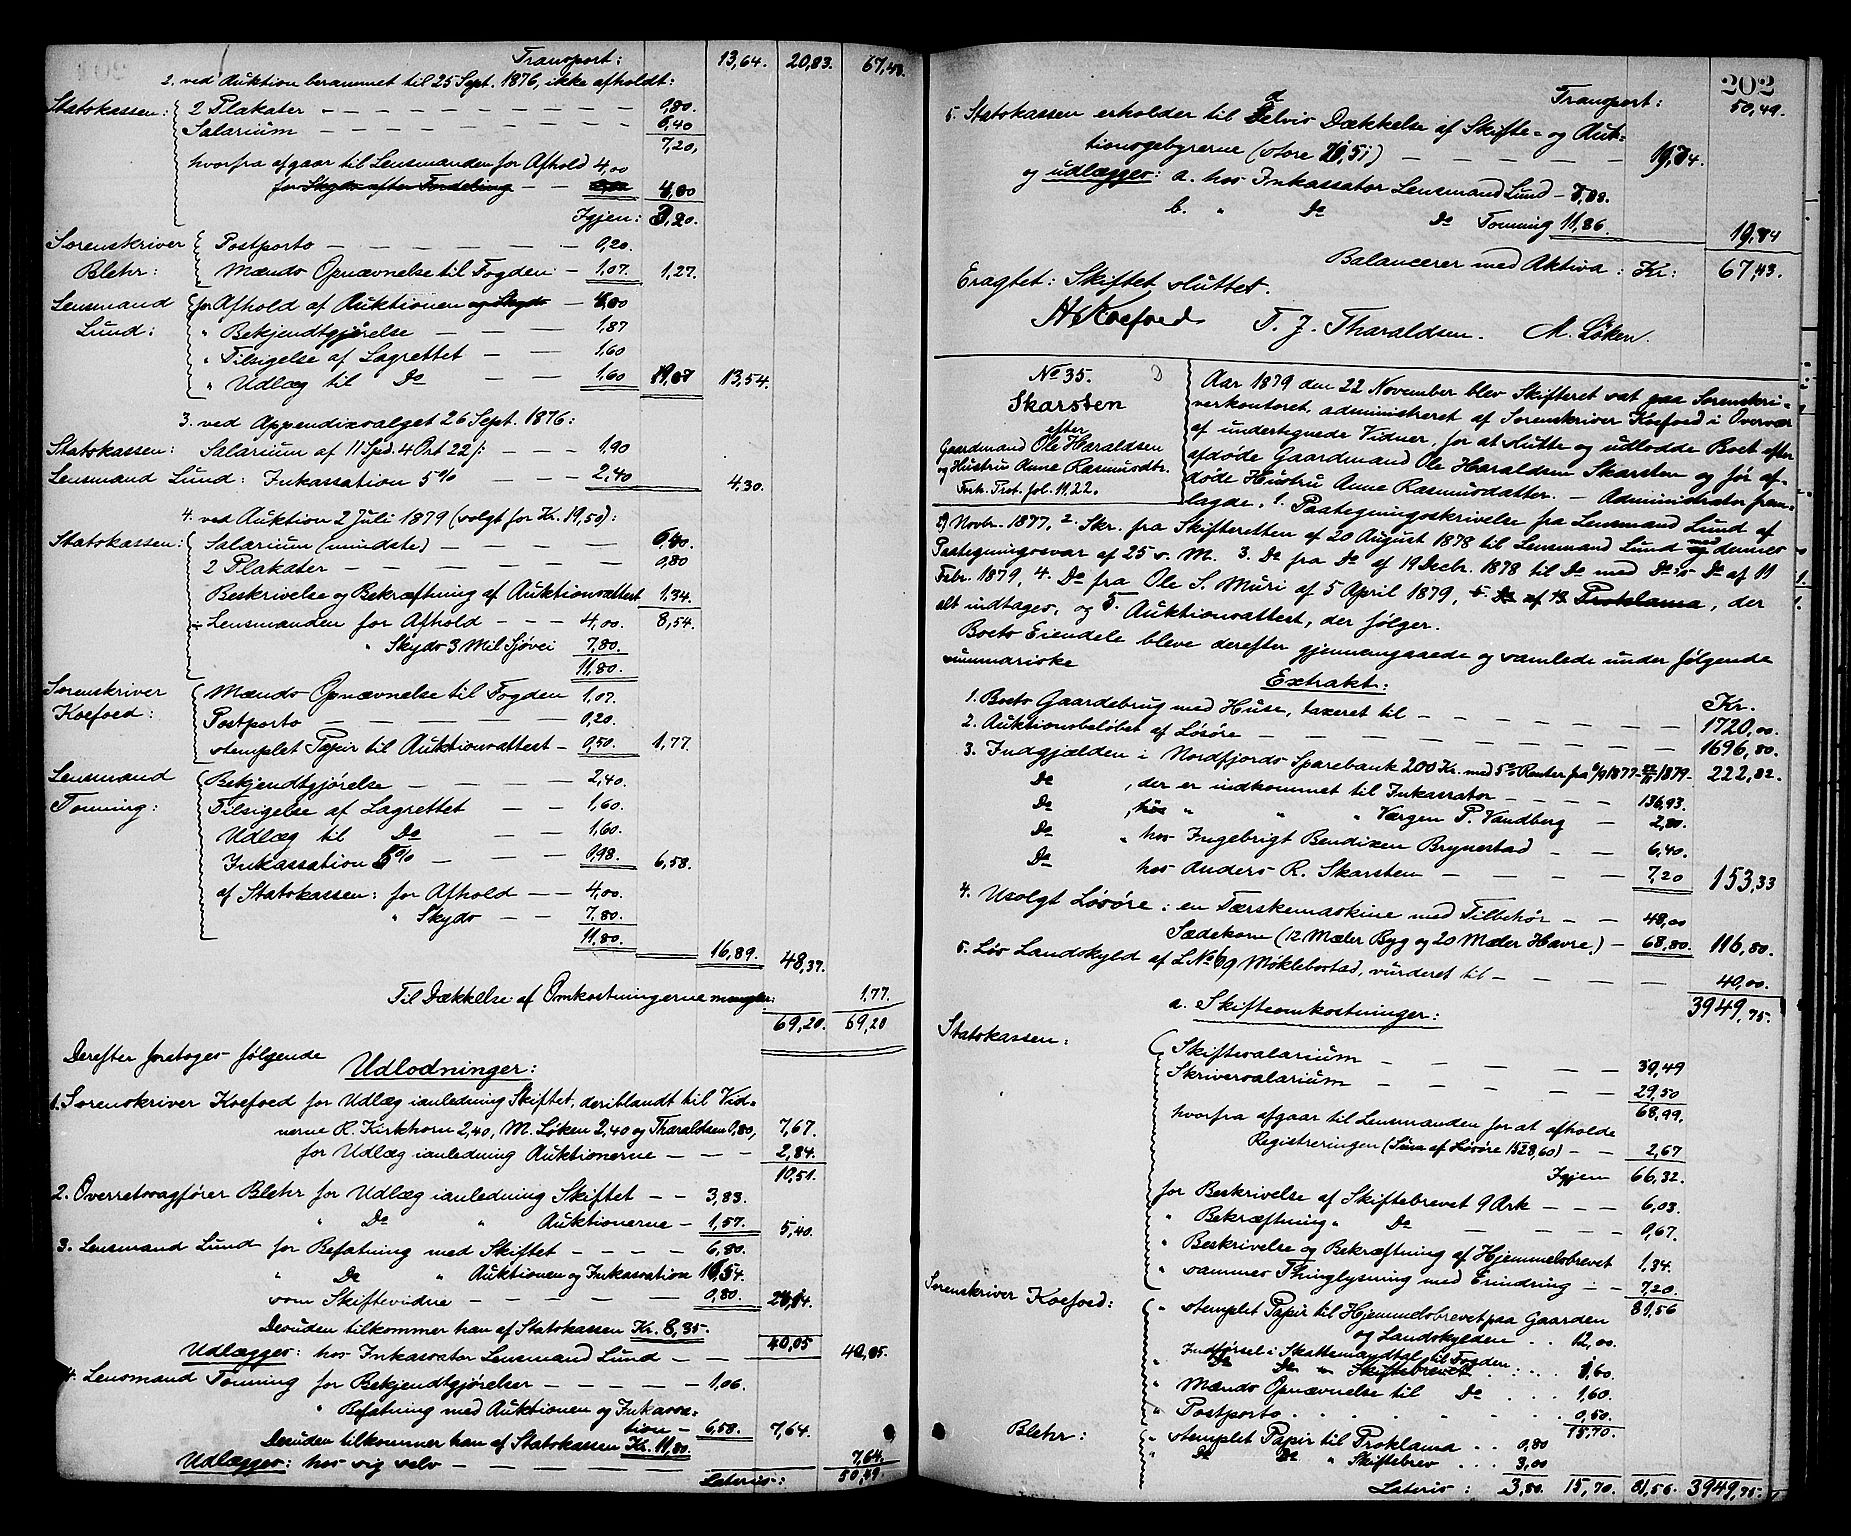 Transport: 13,64. 20,83. 67,40.
2. ved Auktion berammet til 25 Sept. 1876, ikke afholdt:
Statskassen: 2 Plakater — 0,80.
Salarium — 6,40
7,20,
hvorfra afgaar til Lensmanden for Afhold 4,00
for Skyds efter Fordeling — 4,00
Igjen: 3,20.
Sorenskriver Postporto — 0,20.
Blehr: Mænds Opnævnelse til Fogden — 1,07. 1,27.
Lensmand for Afhold af Auktionen og Skyds — 4,00
Lund: " Bekjendtgjørelse — 1,87
" Tilsigelse af Lagrettet — 1,60
" Udlæg til Do — 1,60 9,07 13,54.
3. ved Appendixsalget 26 Sept. 1876:
Statskassen: Salarium af 11 Spd. 4 Ort 22 /: — 1,90
Lensmand Lund: Inkassation 5% — 2,40 4,30.
4. ved Auktion 2 Juli 1879 (solgt for Kr. 19,50):
Statskassen: Salarium (mindste) — 6,40.
2 Plakater — 0,80
Beskrivelse og Bekræftning af Auktionsattest 1,34.
÷ Lensmanden for Afhold — 4,00. 8,54.
" Skyds 3 Mil Sjøvei 7,80.
11,80.
Sorenskriver Mænds Opnævnelse til Fogden 1,07.
Koefoed: Postporto — 0,20.
stemplet Papir til Auktionsattest — 0,50. 1,77.
Lensmand Bekjendtgjørelse — 2,40.
Tonning: Tilsigelse af Lagrettet — 1,60.
Udlæg til Do — 1,60.
Inkassation 5% — 0,98. 6,58.
af Statskassen: for Afhold — 4,00.
" Skyds — 7,80.
11,80.
16,89. 48,37.
Til Dækkelse af Omkostningerne mangler: 1,77.
69,20. 69,20
Derefter foretoges følgende
Udlodninger:
1. Sorenskriver Koefoed for Udlæg ianledning Skiftet, deriblandt til Vid-
nerne R. Kirkhorn 2,40, M. Løken 2,40 og Tharaldsen 0,80, 7,67.
for Udlæg ianledning Auktionerne — 2,84.
10,51.
2. Overretssagfører Blehr for Udlæg ianledning Skiftet — 3,83.
" Do " Auktionerne — 1,57. 5,40.
3. Lensmand Lund for Befatning med Skiftet — 6,80.
" Do " Auktionen og Inkassation 16,54.
som Skiftevidne — 0,80. 24,14.
Desuden tilkommer han af Statskassen Kr. 8,35.
40,05
Udlægges: hos Inkassator Lensmand Lund — 40,05.
4. Lensmand Tonning for Bekjendtgjørelser — 1,06.
" Befatning med Auktionen og Inkassa-
tion — 6,58. 7,64.
Desuden tilkommer han af Statskassen Kr. 11,80.
Udlægges: hos sig selv — 7,64.
Lateris: 50,49.
202
Transport: 50,49.
5. Statskassen erholder til delvis Dækkelse af Skifte- og Auk-
tionsgebyrerne (store — )
og udlægges: a. hos Inkassator Lensmand Lund —
b. " Do Do Tonning 11,86.
Balancerer med Aktiva: Kr: 67,43.
Eragtet: Skiftet sluttet.
H Koefoed T. J. Tharaldsen. M. Løken.
No 35.
Skarsten
efter
Gaardmand Ole Haraldsen
og Hustru Anne Rasmusdtr.
Fork. Prot. fol. 11,22.
Aar 1879 den 22 November blev Skifteret sat paa Sorenskri-
verkontoret, administreret af Sorenskriver Koefoed i Overvær
af undertegnede Vidner, for at slutte og udlodde Boet efter
afdøde Gaardmand Ole Haraldsen Skarsten og før af-
døde Hustru Anne Rasmusdatter. — Administrator frem-
lagde, 1. Paategningsskrivelse fra Lensmand Lund af
Novbr. 1877, 2. Skr. fra Skifteretten af 20 August 1878 til Lensmand Lund med dennes
Paategningssvar af 25 s. M. 3. Do fra Do af 19 Decbr. 1878 til Do med Do:s Do af 11
Febr. 1879, 4. Do fra Ole S. Muri af 5 April 1879, 5. Do af Proklama, der
alt indtages, og 5. Auktionsattest, der følger.
Boets Eiendele bleve derefter gjennemgaaede og samlede under følgende
summariske
Extrakt:
Kr.
1. Boets Gaardebrug med Huse, taxeret til — 1720,00.
2. Auktionsbeløbet af Løsøre — 1696,80.
3. Indgjælden i Nordfjords Sparebank 200 Kr. med 5% Renter fra 6/9 1877–22/11 1879 – 222,82.
Do , der er indkommet til Inkassator — 136,93.
Do , hos " " " Værgen P. Vandberg — 2,80.
Do " hos Ingebrigt Bendixen Brynestad — 6,40.
Do hos Anders R. Skarsten — 7,20 153,33
4. Usolgt Løsøre: en Tærskemaskine med Tilbehør — 48,00
Sædekorn (12 Mæler Byg og 20 Mæler Havre) — 68,80. 116,80.
5. Løs Landskyld af L No 69 Møklebostad, vurderet til — 40,00.
3949,75.
a. Skifteomkostninger:
Statskassen: Skiftesalarium — 39,49
Skriversalarium — 29,50
68,99.
hvorfra afgaar til Lensmanden for at afholde
Registreringen (Sum af Løsøre 1528,60) — 2,67
Igjen 66,32.
for Beskrivelse af Skiftebrevet 9 Ark — 6,03.
" Bekræftning " Do — 0,67.
" Beskrivelse og Bekræftning af Hjemmelsbrevet 1,34.
" sammes Thinglysning med Erindring — 7,20.
81,56
Sorenskriver Koefoed: " stemplet Papir til Hjemmelsbrevet paa Gaarden
og Landskylden . . 12,00.
" Indførsel i Skattemandtal til Fogden
" Do Do " Skiftebrevet . . . 1,60.
" Mænds Opnævnelse til Do . . 1,60.
" Postporto . . . 0,50.
15,70.
Blehr: " stemplet Papir til Proklama . . 0,80
" Do Do " Skiftebrev . . . 3,00
Lateris: 3,80. 15,70. 81,56. 3949,75.